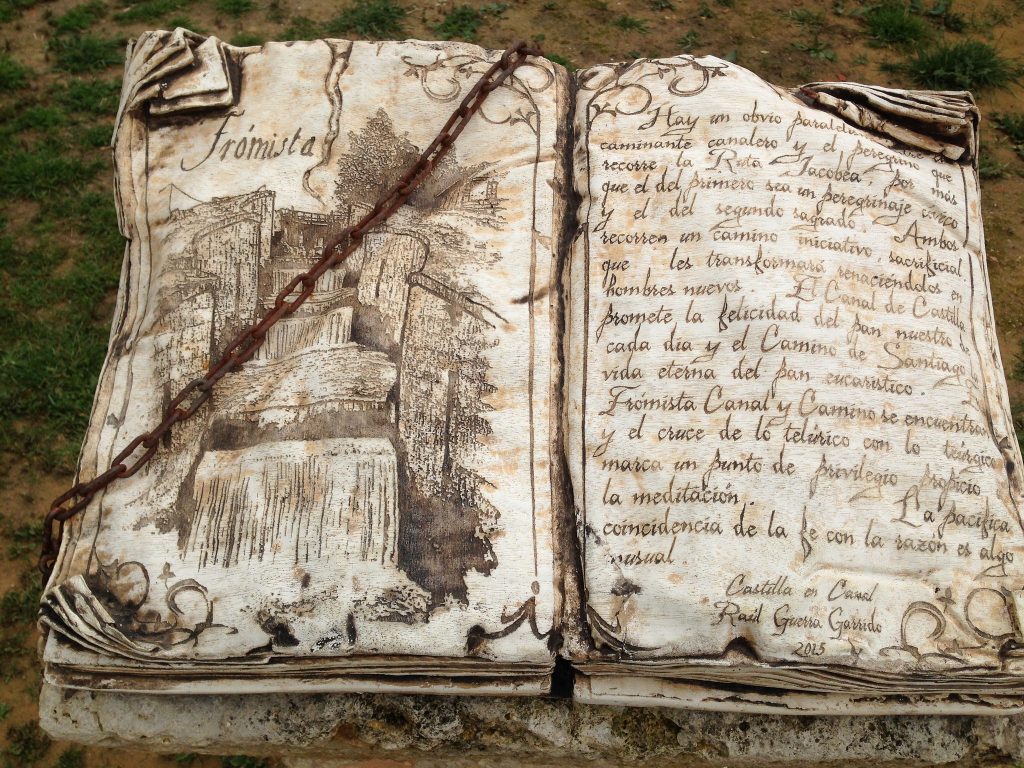 Frómista
Hay un obvio
caminante canalero y el peregrino que
recorre la Ruta Jacobea, por más
que el del primero sea un peregrinaje cívico
y el del segundo sagrado. Ambos
recorren un camino iniciativo, sacrificial
que les transformará renaciéndolos en
hombres nuevos. El Canal de Castilla
promete la felicidad del pan nuestro de
cada dia y el Camino de Santiago
vida eterna del pan eucaristico.
Fromista Canal y Camino se encuentran
y el cruce de lo telúrico con lo teúrgico
marca un punto de privilegio propicio
la meditación. La pacifica
coincidencia de la fe con la razón es algo
inusual.
Castilla en Canal
Raúl Guerra Garrido
2015